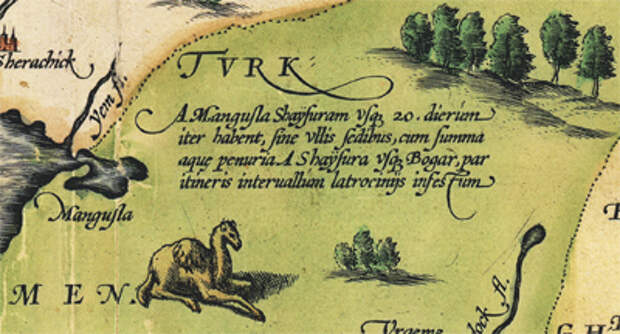 Sherachick
TVRK
Yem f.
A Mangusla Shaÿsuram vsq 20. dierum
iter habent, sine vllis sedibus, cum summa
aque penuria A Shaÿsura vsq Bogar, par
itineris interuallum latrocinijs infestum
Mangusla
MEN.
Vraeme